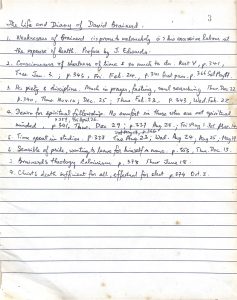 3
The Life and Diary of David Brainerd.
1. Weaknesses of Brainerd is prone to melancholy & to his excessive labours at
the expense of health. Preface by J. Edwards.
2. Consciousness of shortness of time & so much to do. Rest V, p. 341,
Tues Jan. 2, p. 346, Fri. Feb.
3. His piety & discipline. Much in prayer, fasting, soul searching. Thur. Dec 22
p. 340, Thur. Nov. 22, Dec. 25, Thur Feb. 22, p. 343, Wed. Feb. 22
4. Desire for spiritual fellowship. No comfort in those who are not spiritual
minded, p. 341, Thur. Dec 29; p. 337 Aug 28,
5. Time spent in studies. p. 338 Tues Aug 23, Wed. Aug 24, Aug 25,
6. Sensible of pride, wanting to leave for himself a name. p. 353, Thur, Dec 15.
7. Brainerd's theology Calvinism p. 378 Thur June 18.
8. Christ's death sufficient for all, effectual for elect p. 374 Oct. 3.